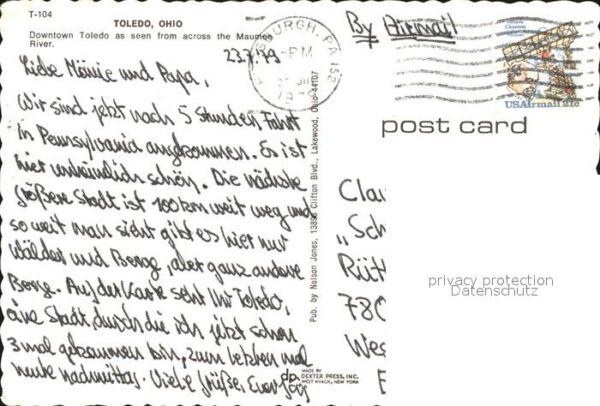 T-104
TOLEDO, OHIO
Downtown Toledo as seen from across the Maumee
River.
23.7.79
Liebe Mäuse und Papa,
Wir sind jetzt nach 5 Stunden Fahrt
in Pennsylvania angekommen. Es ist
hier unheimlich schön. Die nächste
größere Stadt ist 100 km weit weg und
so weit man sieht gibt es hier nur
Wälder und Berge, aber ganz andere
Berge. Auf der Karte seht Ihr Toledo,
eine Stadt, durch die ich jetzt schon
3 mal gekommen bin, zum letzten mal
heute nachmittag. Viele Grüße, Euer
Pub. by Nelson Jones, 13895 Clifton Blvd., Lakewood, Ohio-44107
MADE BY
DEXTER PRESS, INC.
WEST NYACK, NEW YORK
PITTSBURGH, PA 152
PM
1979
By Airmail
USAirmail 21c
post card
Clau
„Sch
Rütt
780
Wes
privacy protection
Datenschutz